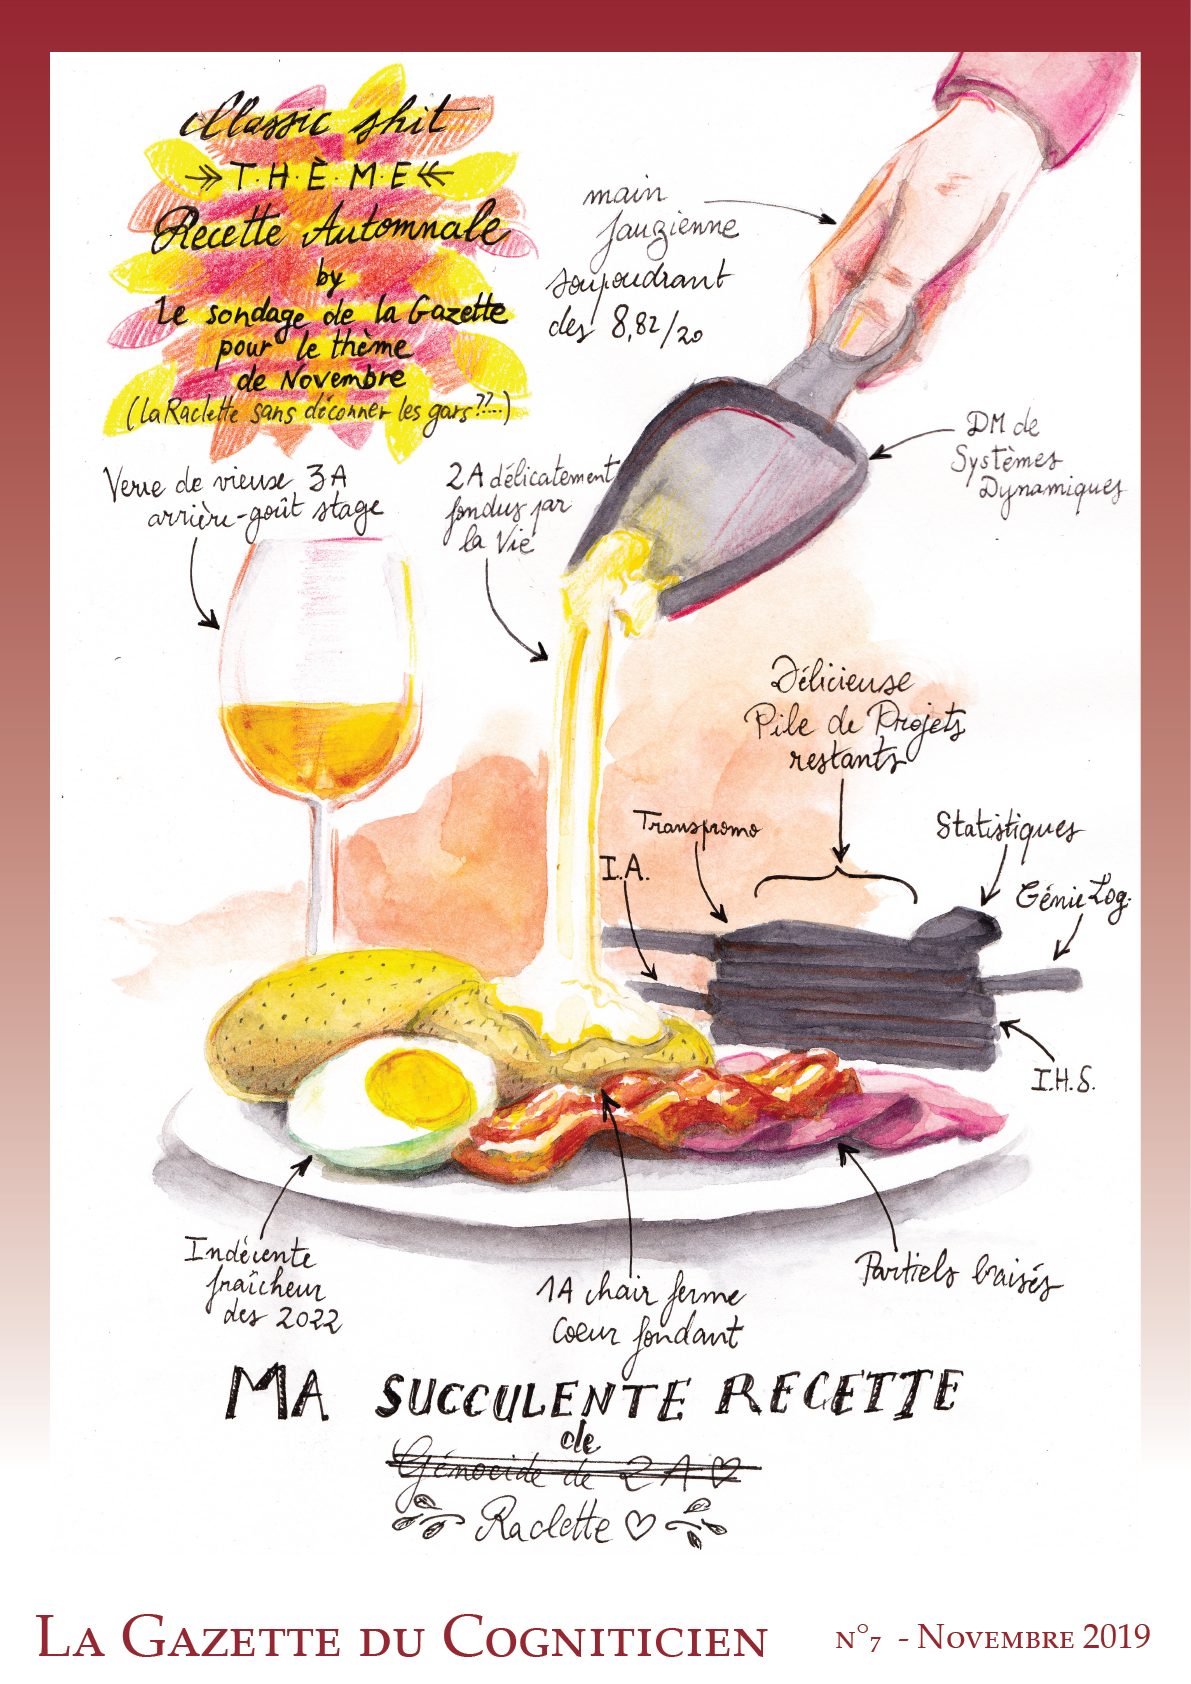 Classic shit
T.H.È.M.E
Recette Automnale
by
Le sondage de la Gazette
pour le thème
de Novembre
(La Raclette sans déconner les gars??...)
main
Jauzienne
soupoudrant
des 8,82/20
DM de
Systèmes
Dynamiques
Verre de vieux 3A
arrière-goût stage
2A délicatement
fondus par
la Vie
Délicieuse
Pile de Projets
restants
Transpromo
I.A.
Statistiques
Génie Log.
I.H.S.
Indécente
fraîcheur
des 2022
1A chair ferme
Coeur fondant
Partiels braisés
MA SUCCULENTE RECETTE
de
Génocide de 2A ♡
Raclette ♡
LA GAZETTE DU COGNITICIEN
N°7 - NOVEMBRE 2019